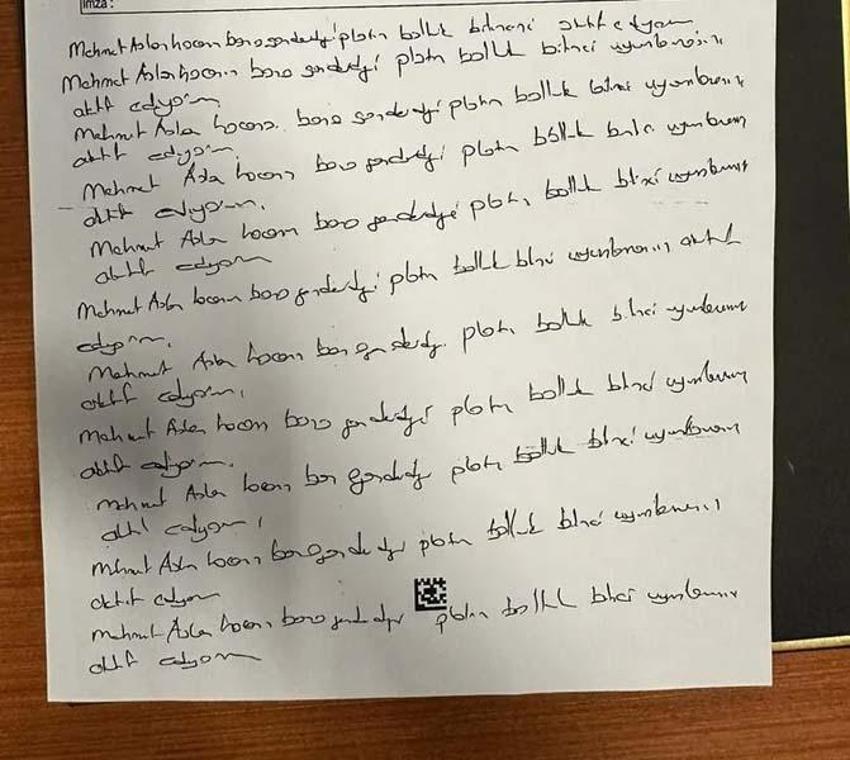 İmza :
Mehmet Aslan hocam bana gönderdiği platin bolluk bilincini aktif ediyorum
Mehmet Aslan hocam bana gönderdiği platin bolluk bilinci uyumlamasını
aktif ediyorum
Mehmet Aslan hocam bana gönderdiği platin bolluk bilinci uyumlamasını
aktif ediyorum.
Mehmet Aslan hocam bana gönderdiği platin bolluk bilinci uyumlamasını
aktif ediyorum.
Mehmet Aslan hocam bana gönderdiği platin bolluk bilinci uyumlamasını
aktif ediyorum
Mehmet Aslan hocam bana gönderdiği platin bolluk bilinci uyumlamasını aktif
ediyorum.
Mehmet Aslan hocam bana gönderdiği platin bolluk bilinci uyumlamasını
aktif ediyorum.
Mehmet Aslan hocam bana gönderdiği platin bolluk bilinci uyumlamasını
aktif ediyorum.
Mehmet Aslan hocam bana gönderdiği platin bolluk bilinci uyumlamasını
aktif ediyorum
Mehmet Aslan hocam bana gönderdiği platin bolluk bilinci uyumlamasını
aktif ediyorum
Mehmet Aslan hocam bana gönderdiği platin bolluk bilinci uyumlamasını
aktif ediyorum